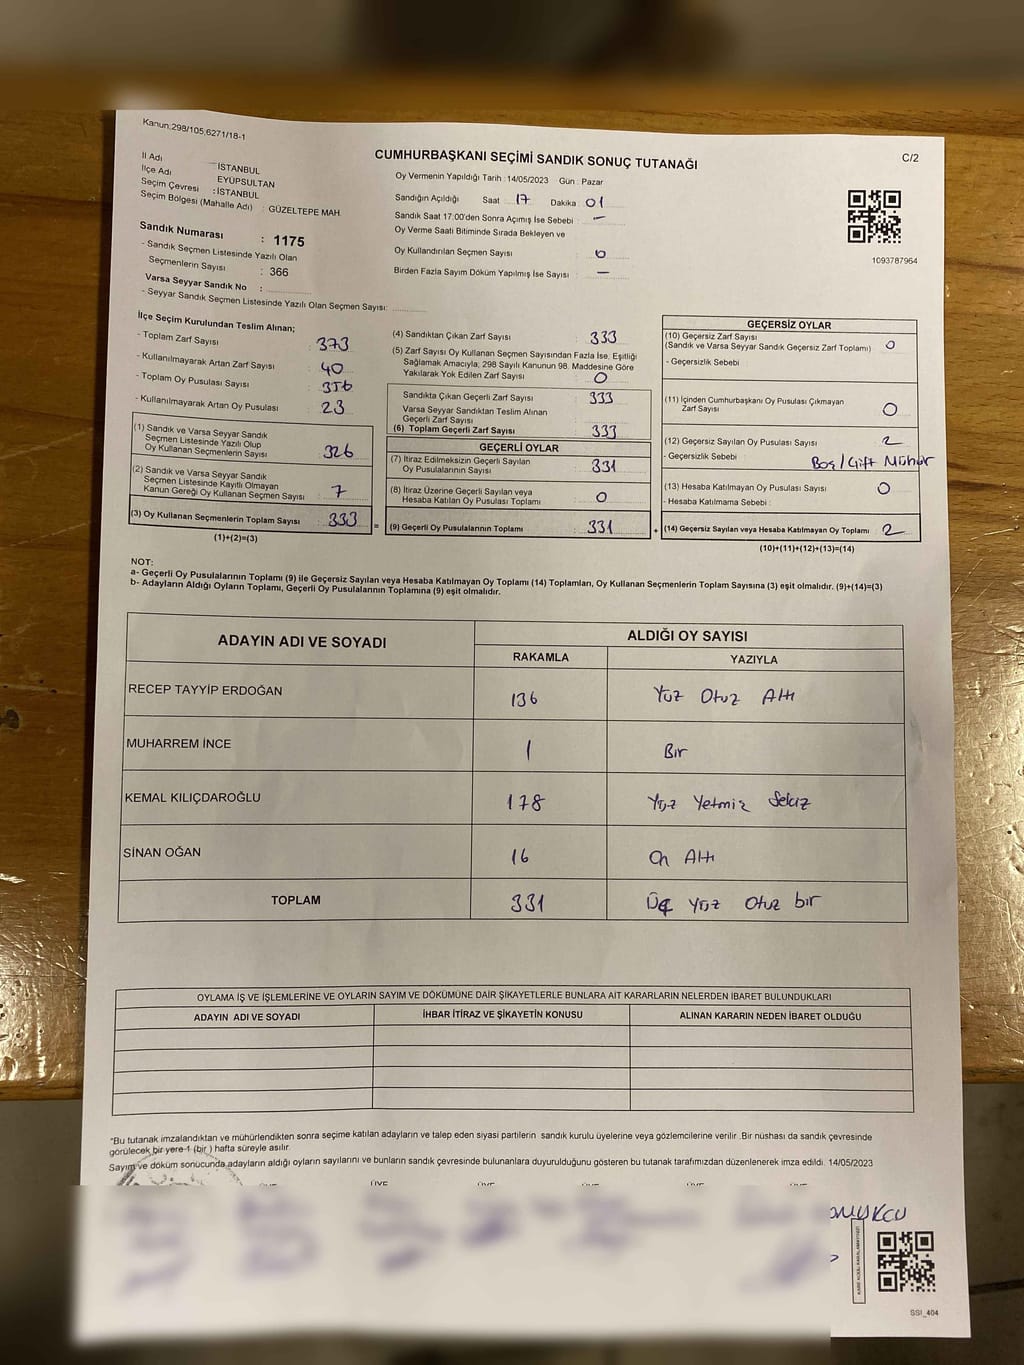 Kanun:298/105,6271/18-1
CUMHURBAŞKANI SEÇİMİ SANDIK SONUÇ TUTANAĞI
C/2
İl Adı : İSTANBUL
İlçe Adı EYÜPSULTAN
Seçim Çevresi : İSTANBUL
Seçim Bölgesi (Mahalle Adı) : GÜZELTEPE MAH.
Sandık Numarası : 1175
- Sandık Seçmen Listesinde Yazılı Olan
Seçmenlerin Sayısı : 366
Varsa Seyyar Sandık No :
- Seyyar Sandık Seçmen Listesinde Yazılı Olan Seçmen Sayısı:
Oy Vermenin Yapıldığı Tarih : 14/05/2023 Gün : Pazar
Sandığın Açıldığı Saat 17 Dakika 01
Sandık Saat 17:00'den Sonra Açımış İse Sebebi : —
Oy Verme Saati Bitiminde Sırada Bekleyen ve
Oy Kullandırılan Seçmen Sayısı : 0
Birden Fazla Sayım Döküm Yapılmış İse Sayısı : —
1093787964
İlçe Seçim Kurulundan Teslim Alınan;
- Toplam Zarf Sayısı : 373
- Kullanılmayarak Artan Zarf Sayısı : 40
- Toplam Oy Pusulası Sayısı : 356
- Kullanılmayarak Artan Oy Pusulası : 23
(1) Sandık ve Varsa Seyyar Sandık
Seçmen Listesinde Yazılı Olup
Oy Kullanan Seçmenlerin Sayısı : 326
(2) Sandık ve Varsa Seyyar Sandık
Seçmen Listesinde Kayıtlı Olmayan
Kanun Gereği Oy Kullanan Seçmen Sayısı : 7
(3) Oy Kullanan Seçmenlerin Toplam Sayısı : 333 =
(1)+(2)=(3)
(4) Sandıktan Çıkan Zarf Sayısı : 333
(5) Zarf Sayısı Oy Kullanan Seçmen Sayısından Fazla İse, Eşitliği
Sağlamak Amacıyla, 298 Sayılı Kanunun 98. Maddesine Göre
Yakılarak Yok Edilen Zarf Sayısı : 0
Sandıkta Çıkan Geçerli Zarf Sayısı : 333
Varsa Seyyar Sandıktan Teslim Alınan
Geçerli Zarf Sayısı :
(6) Toplam Geçerli Zarf Sayısı : 333
GEÇERLİ OYLAR
(7) İtiraz Edilmeksizin Geçerli Sayılan
Oy Pusulalarının Sayısı : 331
(8) İtiraz Üzerine Geçerli Sayılan veya
Hesaba Katılan Oy Pusulası Toplamı : 0
(9) Geçerli Oy Pusulalarının Toplamı : 331 +
GEÇERSİZ OYLAR
(10) Geçersiz Zarf Sayısı
(Sandık ve Varsa Seyyar Sandık Geçersiz Zarf Toplamı) : 0
- Geçersizlik Sebebi
(11) İçinden Cumhurbaşkanı Oy Pusulası Çıkmayan
Zarf Sayısı : 0
(12) Geçersiz Sayılan Oy Pusulası Sayısı : 2
- Geçersizlik Sebebi : Boş / Çift Mühür
(13) Hesaba Katılmayan Oy Pusulası Sayısı : 0
- Hesaba Katılmama Sebebi :
(14) Geçersiz Sayılan veya Hesaba Katılmayan Oy Toplamı : 2
(10)+(11)+(12)+(13)=(14)
NOT:
a- Geçerli Oy Pusulalarının Toplamı (9) ile Geçersiz Sayılan veya Hesaba Katılmayan Oy Toplamı (14) Toplamları, Oy Kullanan Seçmenlerin Toplam Sayısına (3) eşit olmalıdır. (9)+(14)=(3)
b- Adayların Aldığı Oyların Toplamı, Geçerli Oy Pusulalarının Toplamına (9) eşit olmalıdır.
ADAYIN ADI VE SOYADI ALDIĞI OY SAYISI
RAKAMLA YAZIYLA
RECEP TAYYİP ERDOĞAN 136 Yüz Otuz Altı
MUHARREM İNCE 1 Bir
KEMAL KILIÇDAROĞLU 178 Yüz Yetmiş Sekiz
SİNAN OĞAN 16 On Altı
TOPLAM 331 Üç Yüz Otuz bir
OYLAMA İŞ VE İŞLEMLERİNE VE OYLARIN SAYIM VE DÖKÜMÜNE DAİR ŞİKAYETLERLE BUNLARA AİT KARARLARIN NELERDEN İBARET BULUNDUKLARI
ADAYIN ADI VE SOYADI İHBAR İTİRAZ VE ŞİKAYETİN KONUSU ALINAN KARARIN NEDEN İBARET OLDUĞU
*Bu tutanak imzalandıktan ve mühürlendikten sonra seçime katılan adayların ve talep eden siyasi partilerin sandık kurulu üyelerine veya gözlemcilerine verilir .Bir nüshası da sandık çevresinde
görülecek bir yere 1 (bir ) hafta süreyle asılır.
Sayım ve döküm sonucunda adayların aldığı oyların sayılarını ve bunların sandık çevresinde bulunanlara duyurulduğunu gösteren bu tutanak tarafımızdan düzenlenerek imza edildi. 14/05/2023
ÜYE ÜYE ÜYE ÜYE ÜYE
SSI_404